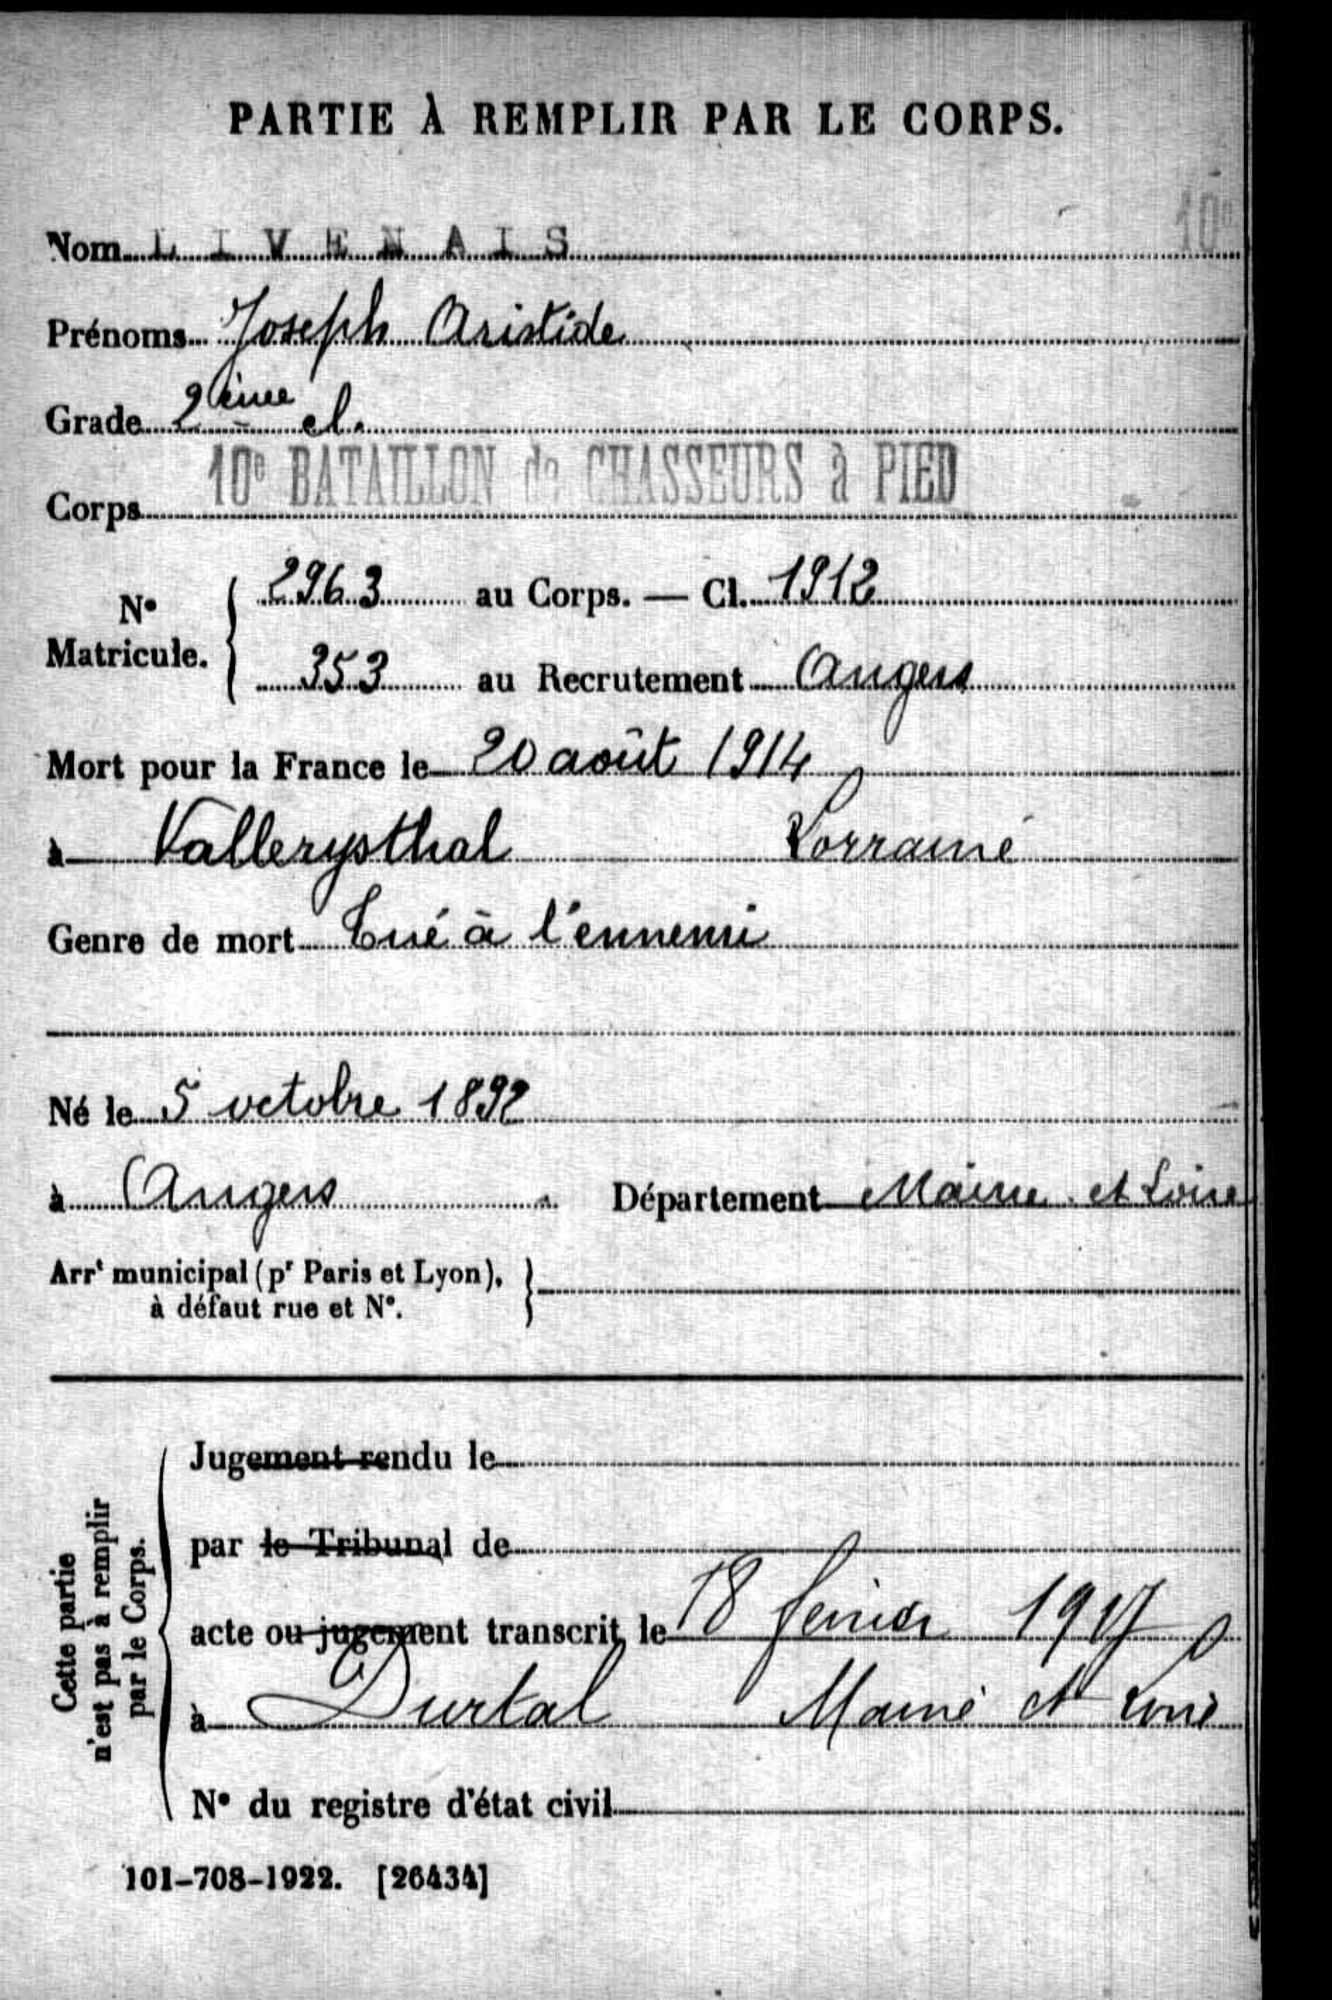 PARTIE À REMPLIR PAR LE CORPS.
10e
Nom LIVENAIS
Prénoms Joseph Aristide
Grade 2ème cl.
Corps 10e BATAILLON de CHASSEURS à PIED
No Matricule. { 2963 au Corps. — Cl. 1912
353 au Recrutement Angers
Mort pour la France le 20 août 1914
à Vallerysthal Lorraine
Genre de mort Tué à l'ennemi
Né le 5 octobre 1892
à Angers Département Maine et Loire
Arrt municipal (pr Paris et Lyon), à défaut rue et No. }
Cette partie n'est pas à remplir par le Corps.
Jugement rendu le
par le Tribunal de
acte ou jugement transcrit le 18 février 1917
à Durtal Maine et Loire
No du registre d'état civil
101-708-1922. [26434]